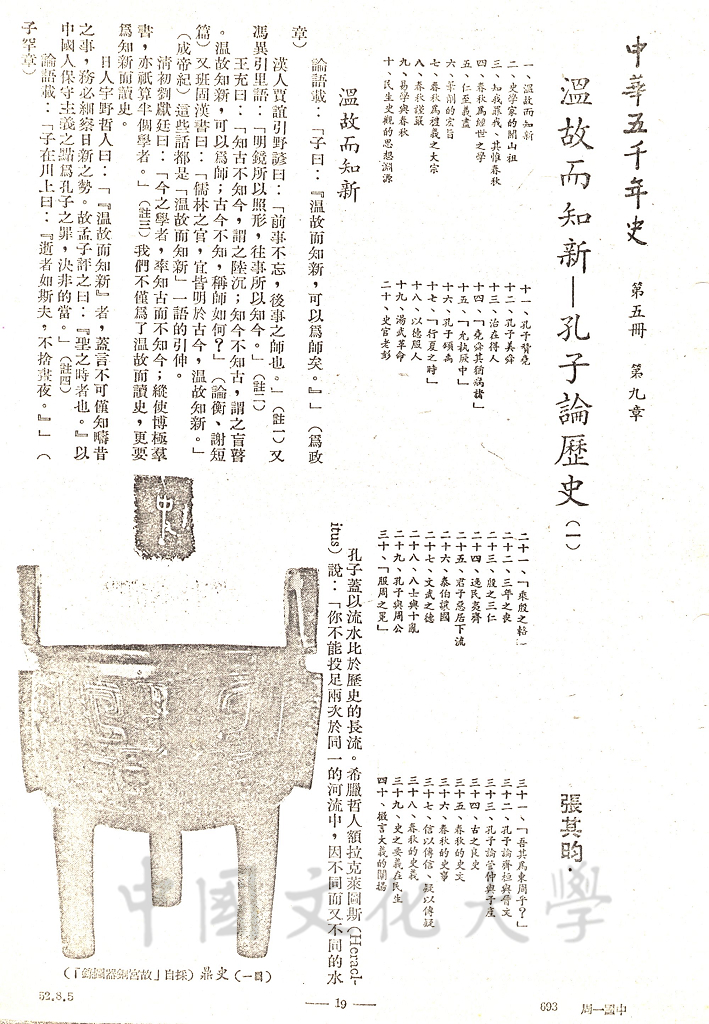 中華五千年史　第五冊　第九章
溫故而知新—孔子論歷史（一）
張其昀
一、溫故而知新
二、史學家的開山祖
三、知我罪我、其惟春秋
四、春秋爲經世之學
五、仁至義盡
六、筆削的宏旨
七、春秋爲禮義之大宗
八、春秋謹嚴
九、易學與春秋
十、民生史觀的思想淵源
十一、孔子贊堯
十二、孔子美舜
十三、治在得人
十四、「堯舜其猶病諸」
十五、「允執厥中」
十六、孔子頌禹
十七、「行夏之時」
十八、以德服人
十九、湯武革命
二十、史官老彭
二十一、「乘殷之輅」
二十二、三年之喪
二十三、殷之三仁
二十四、逸民夷齊
二十五、君子惡居下流
二十六、泰伯讓國
二十七、文武之德
二十八、八士與十亂
二十九、孔子與周公
三十、「服周之冕」
三十一、「吾其爲東周乎？」
三十二、孔子論齊桓與晉文
三十三、孔子論管仲與子產
三十四、古之良史
三十五、春秋的史文
三十六、春秋的史事
三十七、信以傳信、疑以傳疑
三十八、春秋的史義
三十九、史之要義在民生
四十、微言大義的闡揚
溫故而知新
論語載：「子曰：『溫故而知新，可以爲師矣。』」（爲政
章）
漢人賈誼引野諺曰：「前事不忘，後事之師也。」（註一）又
馮異引里語：「明鏡所以照形，往事所以知今。」（註二）
王充曰：「知古不知今，謂之陸沉；知今不知古，謂之盲瞽
。溫故知新，可以爲師；古今不知，稱師如何？」（論衡、謝短
篇）又班固漢書曰：「儒林之官，宜皆明於古今，溫故知新。」
（成帝紀）這些話都是「溫故而知新」一語的引伸。
清初劉獻廷曰：「今之學者，率知古而不知今；縱使博極羣
書，亦祇算半個學者。」（註三）我們不僅爲了溫故而讀史，更要
爲知新而讀史。
日人宇野哲人曰：「『溫故而知新』者，蓋言不可僅知疇昔
之事，務必細察日新之勢。故孟子評之曰：『聖之時者也。』以
中國人保守主義之點爲孔子之罪，決非的當。」（註四）
論語載：「子在川上曰：『逝者如斯夫，不捨晝夜。』」（
子罕章）
孔子蓋以流水比於歷史的長流。希臘哲人額拉克萊圖斯（Heracl-
itus）說：「你不能投足兩次於同一的河流中，因不同而又不同的水
（圖一）史鼎（採自「故宮銅器圖錄」）
中國文化大學
52.8.5
— 19 —
693
中國一周